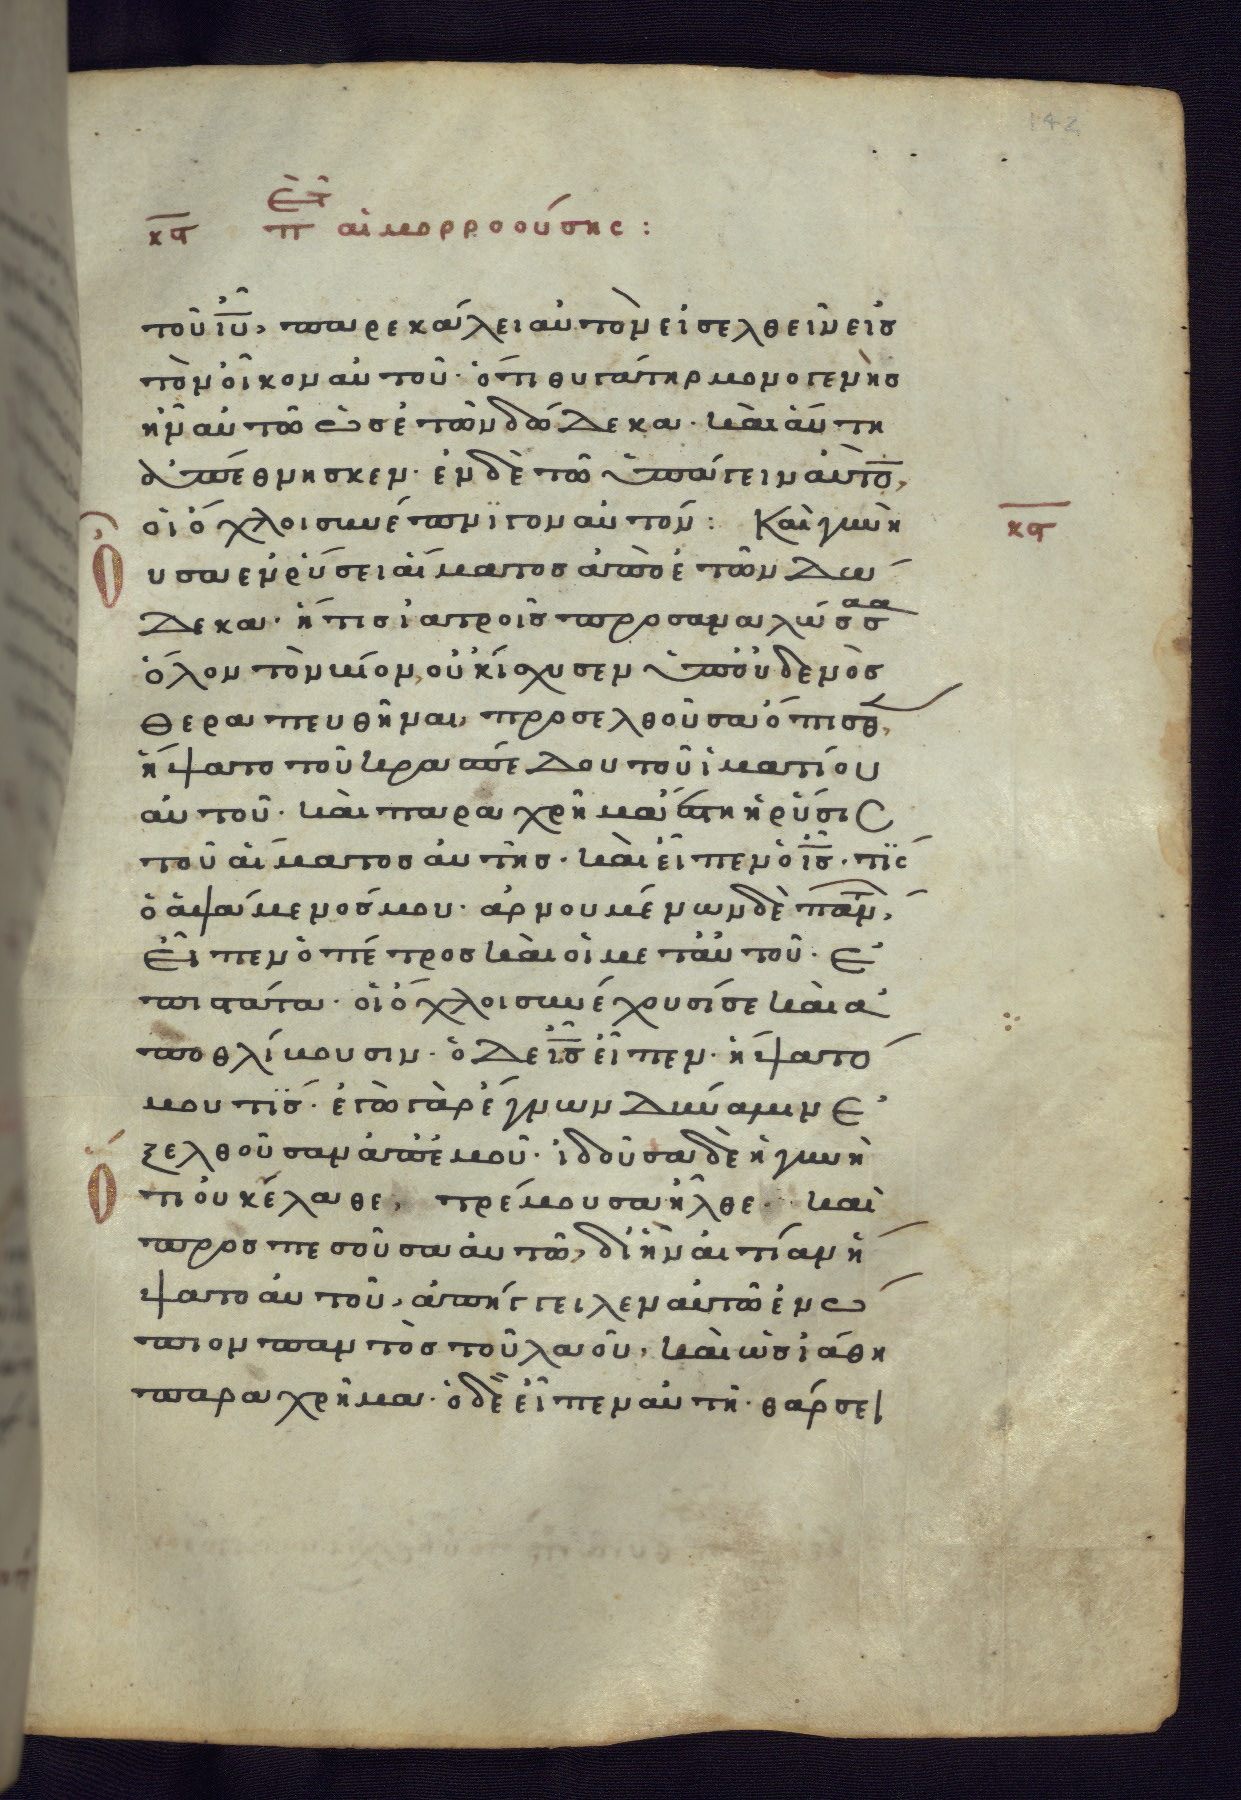 142
κϛ πὲρὶ αἱμορροούσης:
τοῦ ἰ͞υ, παρεκάλει αὐτὸν εἰσελθεῖν εἰς
τὸν οἶκον αὐτοῦ· ὅτι θυγάτηρ μονογενὴς
ἦν αὐτῶ ὡς ἐτῶν δώδεκα· καὶ αὕτη
ἀπέθνησκεν· ἐν δὲ τῶ ὑπάγειν αὐτο͞,
οἱ ὄχλοι συνέπνϊγον αὐτόν: Καὶ γυνὴ
κϛ
οὖσα ἐν ῥύσει αἵματος ἀπὸ ἐτῶν δώ
δεκα· ἥτις ἰατροῖς προσαναλώσασα
ὅλον τὸν βίον, οὐκ ἴσχυσεν ὑπ᾽ οὐδενὸς
θεραπευθῆναι, προσελθοῦσα ὄπισθ,
ἥψατο τοῦ κρασπέδου τοῦ ἱματίου
αὐτοῦ· καὶ παραχρῆμα ἔστη ἡ ῥύσις
τοῦ αἵματος αὐτῆς· καὶ εἶπεν ὁ ἰ͞ς· τίς
ὁ ἁψάμενός μου· ἀρνουμένων δὲ πάν͞,
εἶπεν ὁ πέτρος καὶ οἱ μετ᾽ αὐτοῦ· ἐ
πιστάτα· οἱ ὄχλοι συνέχουσί σε καὶ ἀ
ποθλίβουσιν· ὁ δε ἰ͞ς εἶπεν· ἥψατό
μου τίς· ἐγὼ γὰρ ἔγνων δύναμιν ἐ
ξελθοῦσαν ἀπ᾽ ἐμοῦ· ἰδοῦσα δὲ ἡ γυνὴ
ὅτι οὐκ ἔλαθε, τρέμουσα ἦλθε· καὶ
προσπεσοῦσα αὐτῶ, δι᾽ ἣν αἰτίαν ἥ
ψατο αὐτοῦ, ἀπήγγειλεν αὐτῶ ἐνώ
πιον παντὸς τοῦ λαοῦ, καὶ ὡς ἰάθη
παραχρῆμα· ὁ δὲ εἶπεν αὐτῆ· θάρσει